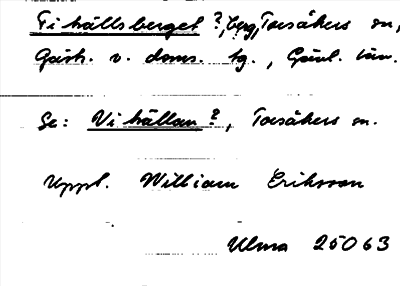 Tihällsberget?, berg, Torsåkers sn,
Gästr. v. doms. tg., Gävl. län.
Se: Vihällan?, Torsåkers sn.
Uppt. William Eriksson
Ulma 25063